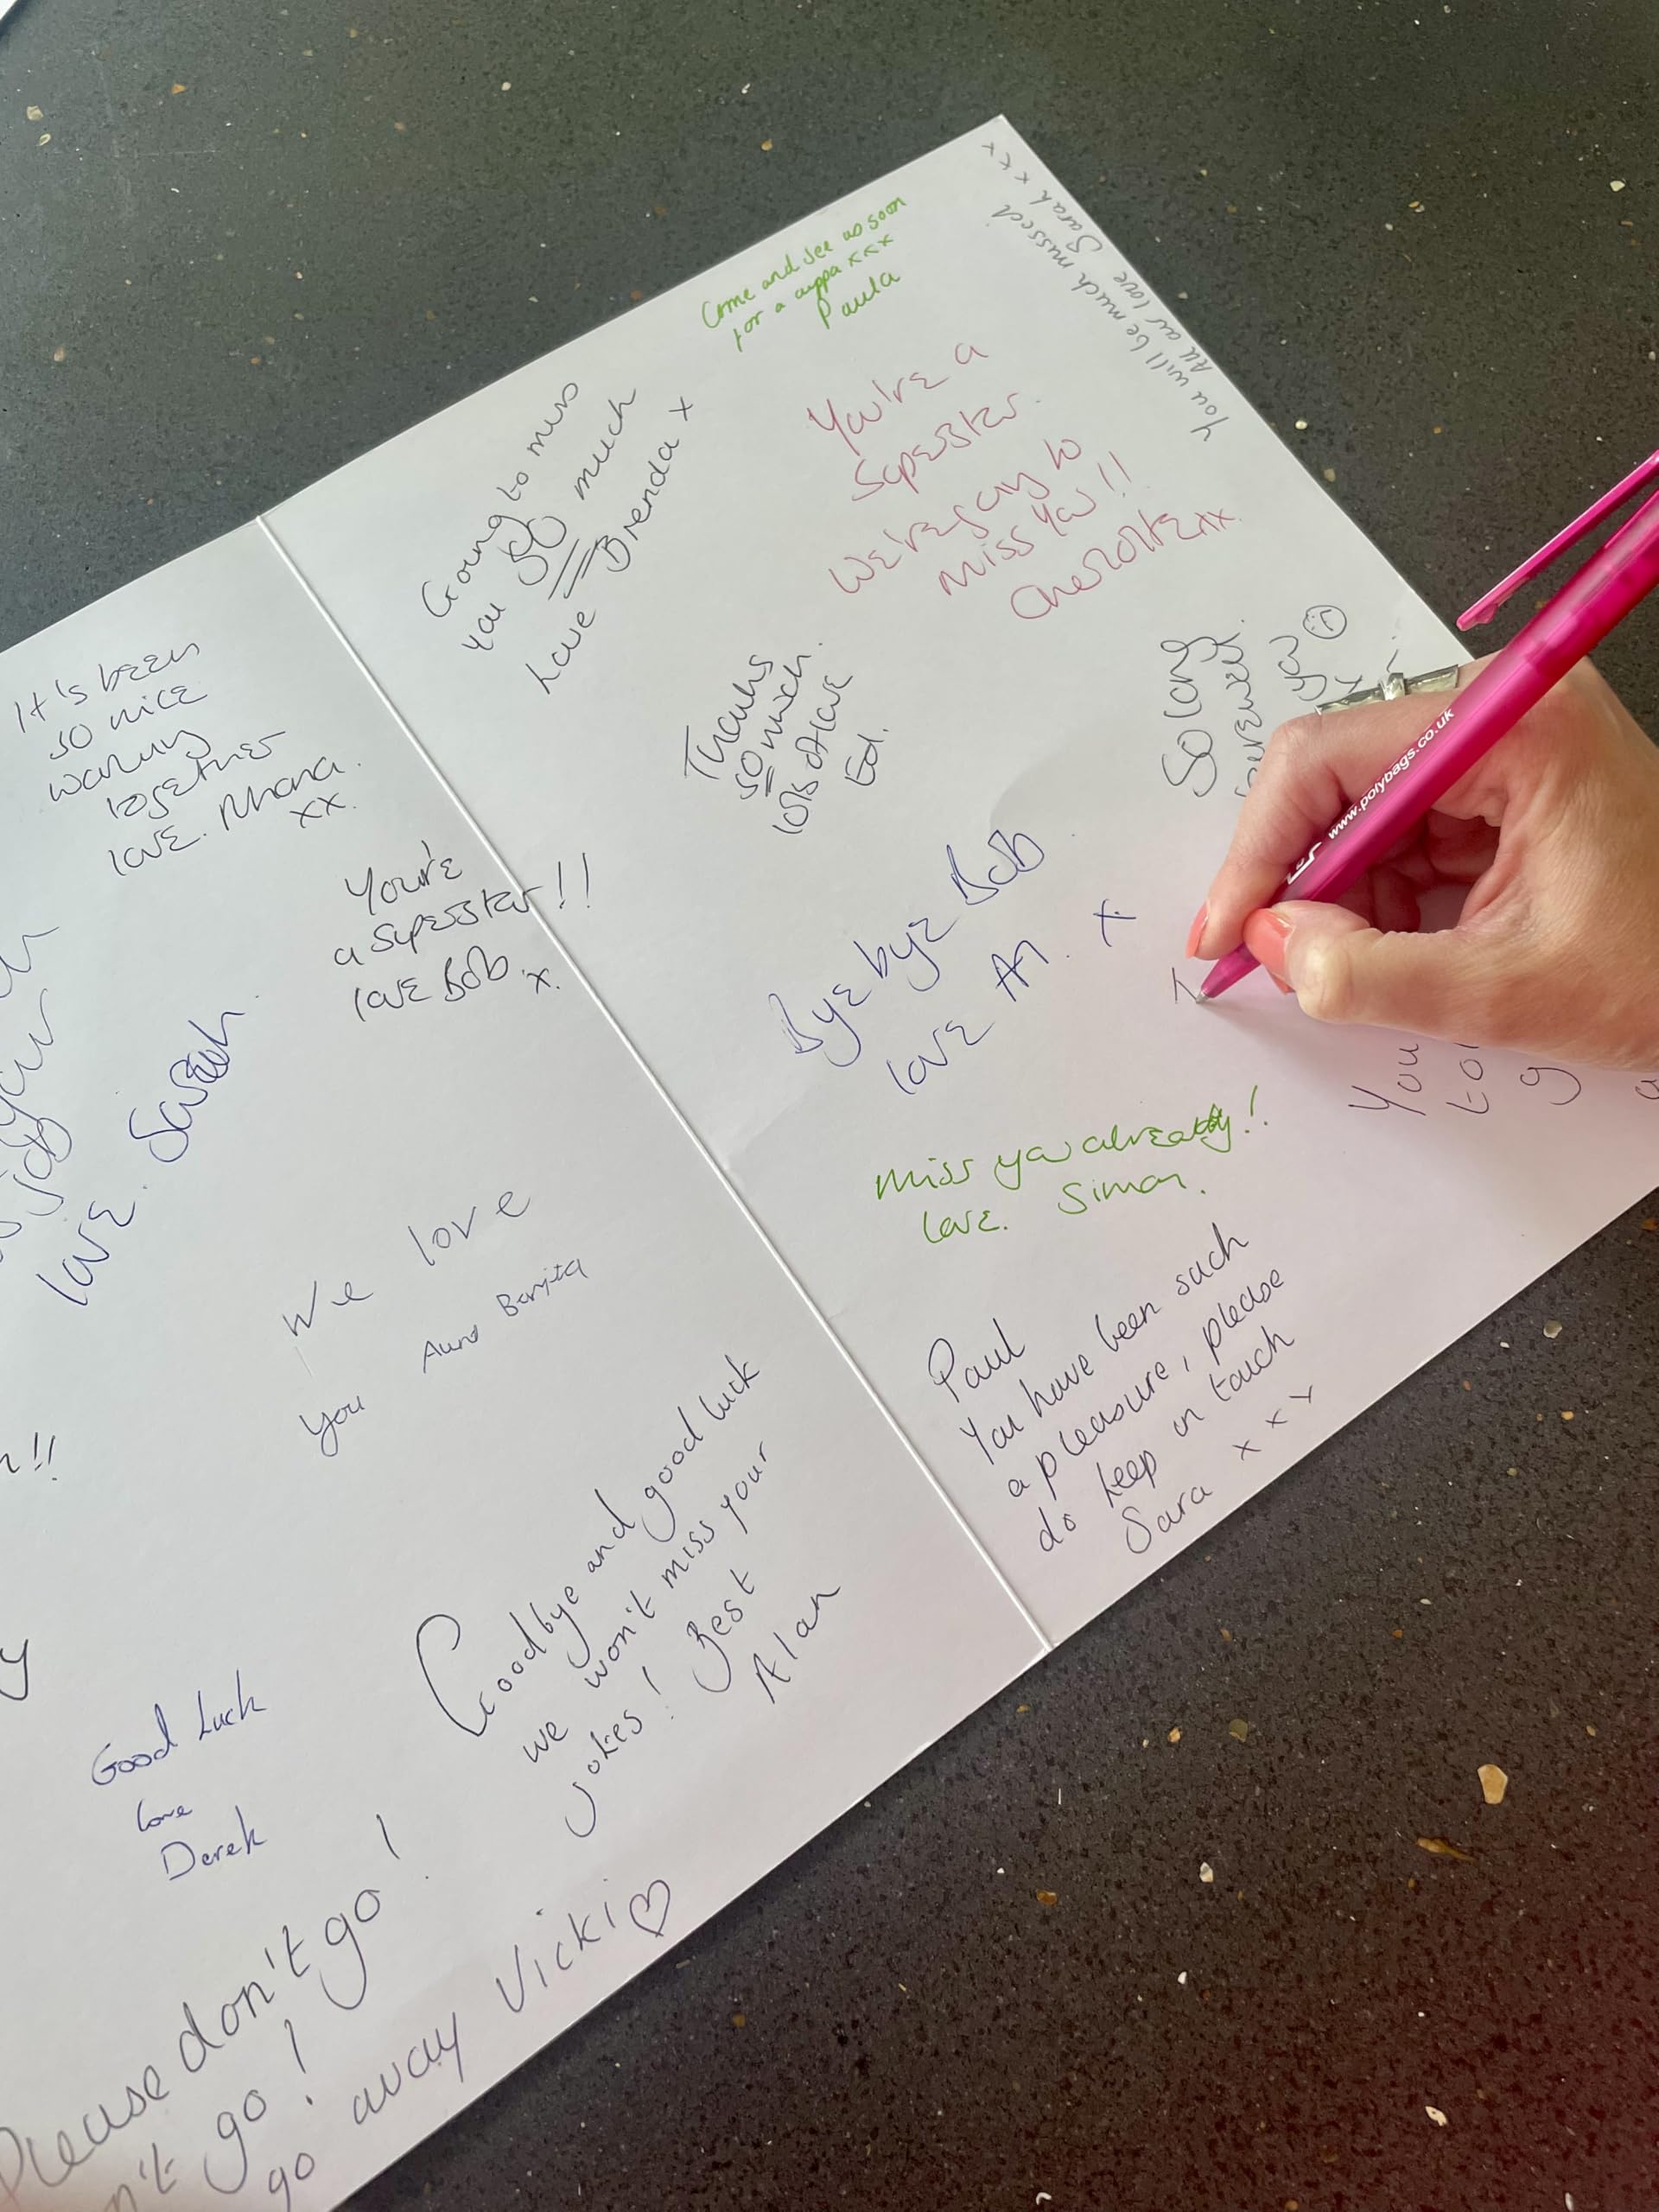 It's been
so nice
working
together
love. Rhona.
xx.
You're
a superstar!!
love Bob.
x.
your
job
love. Sarah.
We love
you Aunt
Good Luck
love
Derek
Goodbye and good luck
we won't miss your
jokes! Best
Alan
Please don't go!
go!
go away Vicki ♡
Come and see us soon
for a cuppa xxx
Paula
You will be much missed
All our love Sarah xxx
Going to miss
you SO much
Love Brenda x
You're a
superstar.
We're going to
miss you!!
Thanks
so much.
lots of love
Ed.
So long
farewell.
you ☹
Bye bye Bob
love Al. x
You
Miss you already!!
love. Simon.
Paul
You have been such
a pleasure, please
do keep in touch
Sara x x x
www.polybags.co.uk